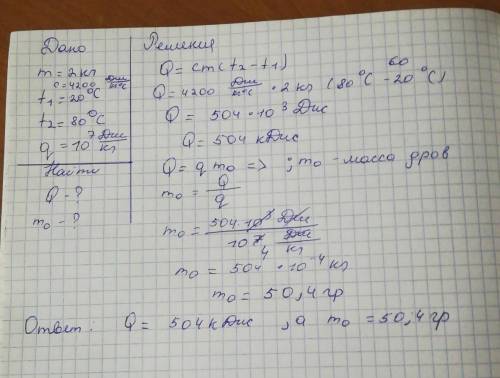 Дано
m = 2 кг
c = 4200 Дж/кг°C
t₁ = 20°C
t₂ = 80°C
q = 10⁷ Дж/кг
Найти
Q - ?
m₀ - ?
Решения
Q = cm(t₂ - t₁)
60
Q = 4200 Дж/кг°C · 2 кг (80°C - 20°C)
Q = 504 · 10³ Дж
Q = 504 кДж
Q = q m₀ => ; m₀ - масса дров
m₀ = Q/q
m₀ = 504 · 10³ Дж / 10⁷ Дж/кг
4
m₀ = 504 · 10⁻⁴ кг
m₀ = 50,4 гр
Ответ: Q = 504 кДж , а m₀ = 50,4 гр